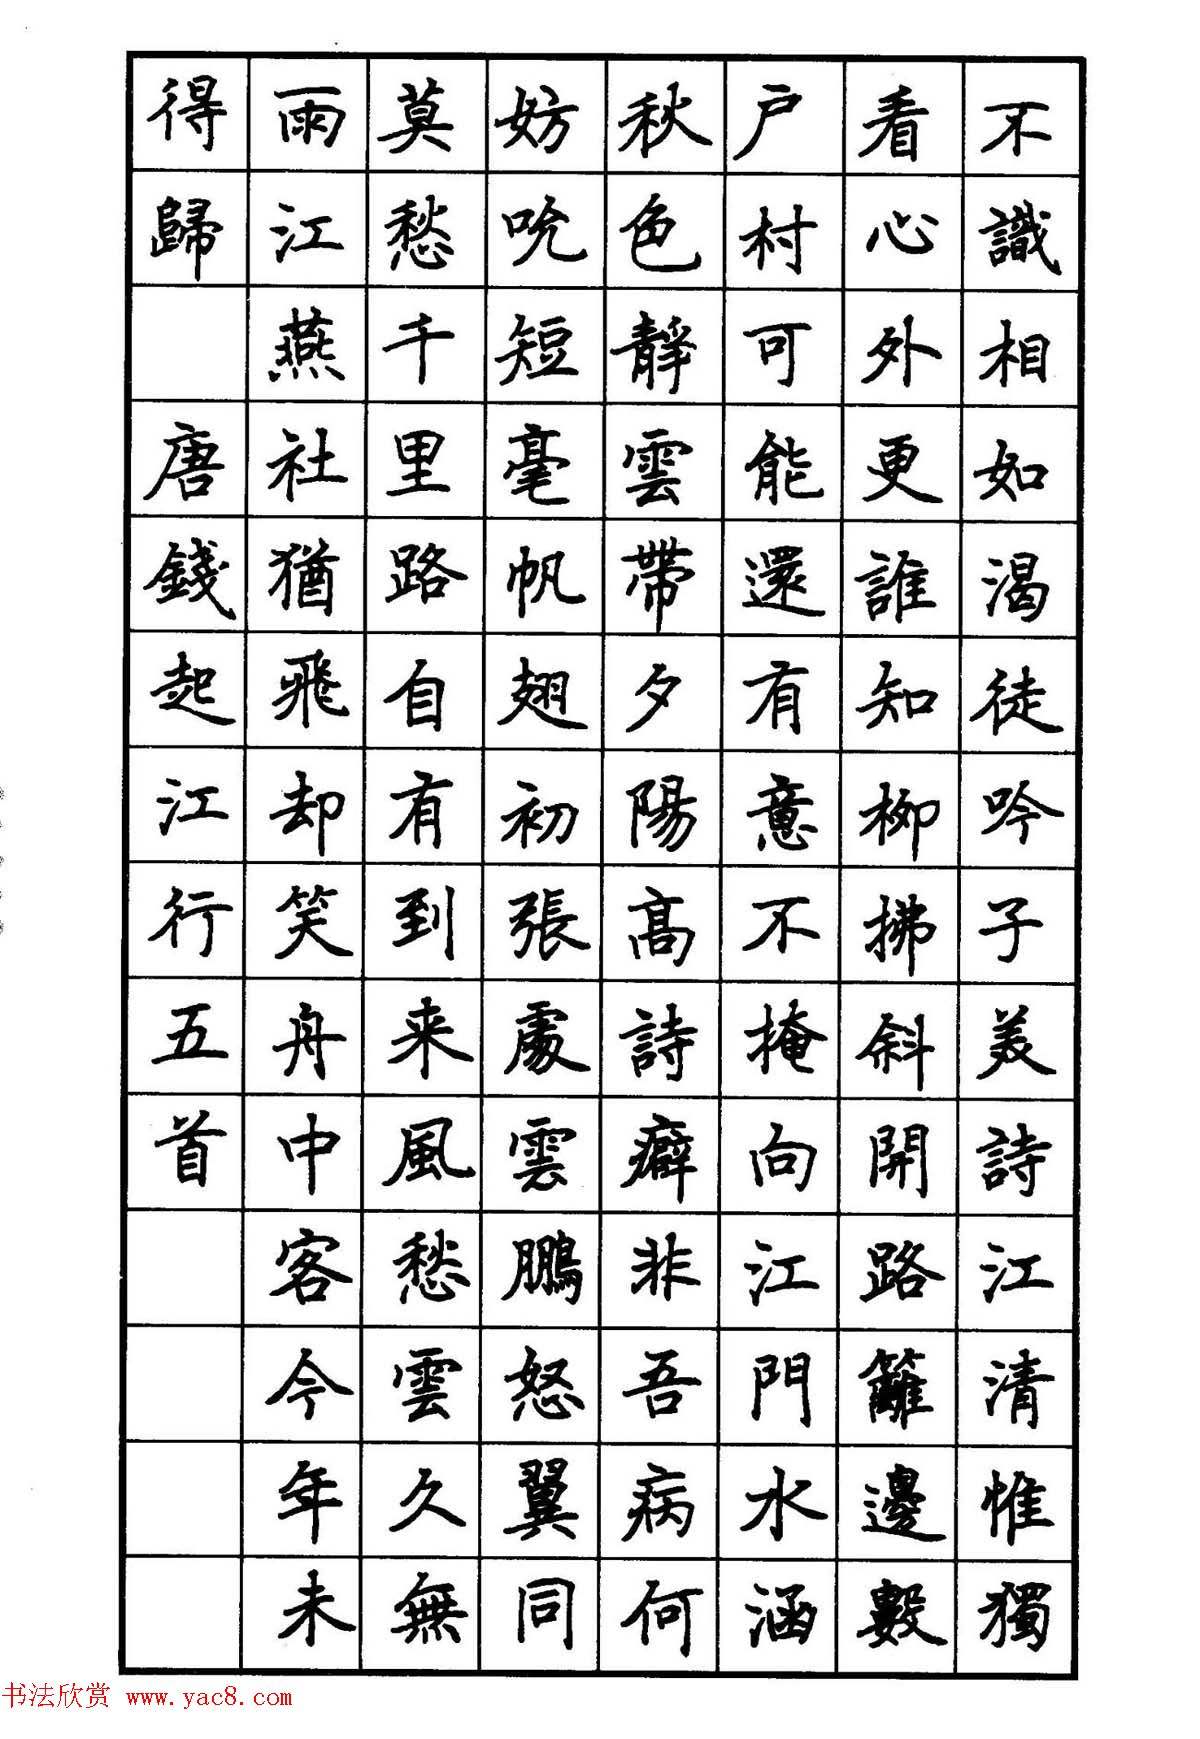 不識相如渴徒吟子美詩江清惟獨
看心外更誰知柳拂斜開路籬邊數
戶村可能還有意不掩向江門水涵
秋色靜雲帶夕陽高詩癖非吾病何
妨吮短毫帆翅初張處雲鵬怒翼同
莫愁千里路自有到来風愁雲久無
雨江燕社猶飛却笑舟中客今年未
得歸 唐錢起江行五首
书法欣赏 www.yac8.com